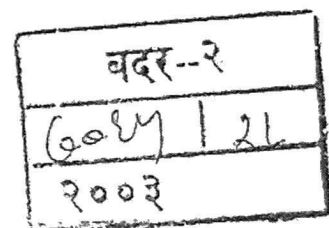 वदर--२
७०४५ | २८
२००३